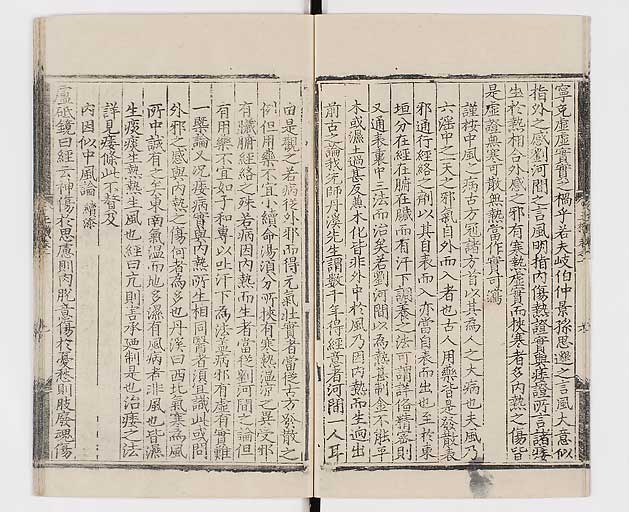 寧免虛虛實實之禍乎若夫岐伯仲景孫思邈之言風大意似
指外之感劉河間之言風明指內傷熱證實與痿證所言諸痿
生於熱相合外感之邪有寒熱虛實而挾寒者多內熱之傷皆
是虛證無寒可散無熱當作實可瀉
謹按中風之病古方冠諸方首以其為人之大病也夫風乃
六淫中之一天之邪氣自外而入者也古人用藥皆是發散表
邪通行經絡之劑以其自表而入亦當自表而出也至於東
垣分在經在腑在臟而有汗下調養之法可謂詳備精密則
又通表裏中三法而治矣若劉河間以為熱甚制金不能平
木或濕土過甚反兼木化皆非外中於風乃因內熱而生迥出
前古之論我先師丹溪先生謂數千年得經意者河間一人耳
由是觀之若病從外邪而得元氣壯實者當從古方發散之
例但用藥不宜小續命湯須分所挾有寒熱溫涼之異受邪
有臟腑經絡之殊若病因內熱而生者當從劉河間之論但
有用藥不宜如子和專以吐汗下為法蓋病有有虛有實難
一藥論又況痿病實與內熱所生相同醫者須宜識此或問
外邪之感與內熱之傷何者為多也丹溪曰西北氣寒為風
所中誠有之矣東南氣溫而地多濕有風病者非風也皆濕
生痰痰生熱熱生風也經曰亢則害承迺制是也治痿之法
詳見痿條此不贅及
內因似中風論 續添
靈砥鏡曰經云神傷於思慮則肉脫意傷於憂愁則肢廢魂傷